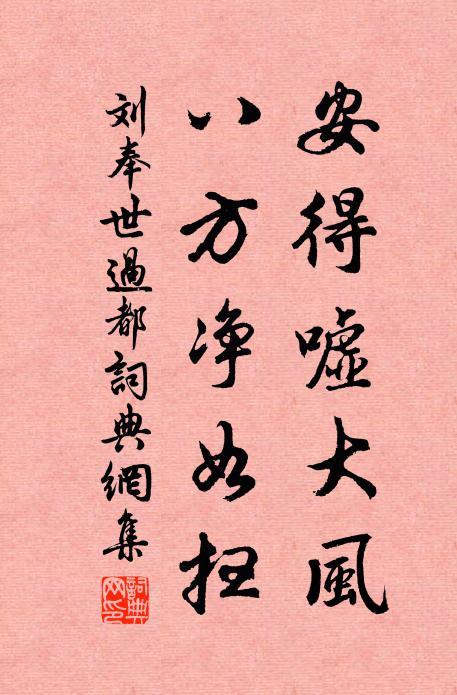 安得嘘大風
八方净如扫
刘奉世過都詞典網集
詞典网印